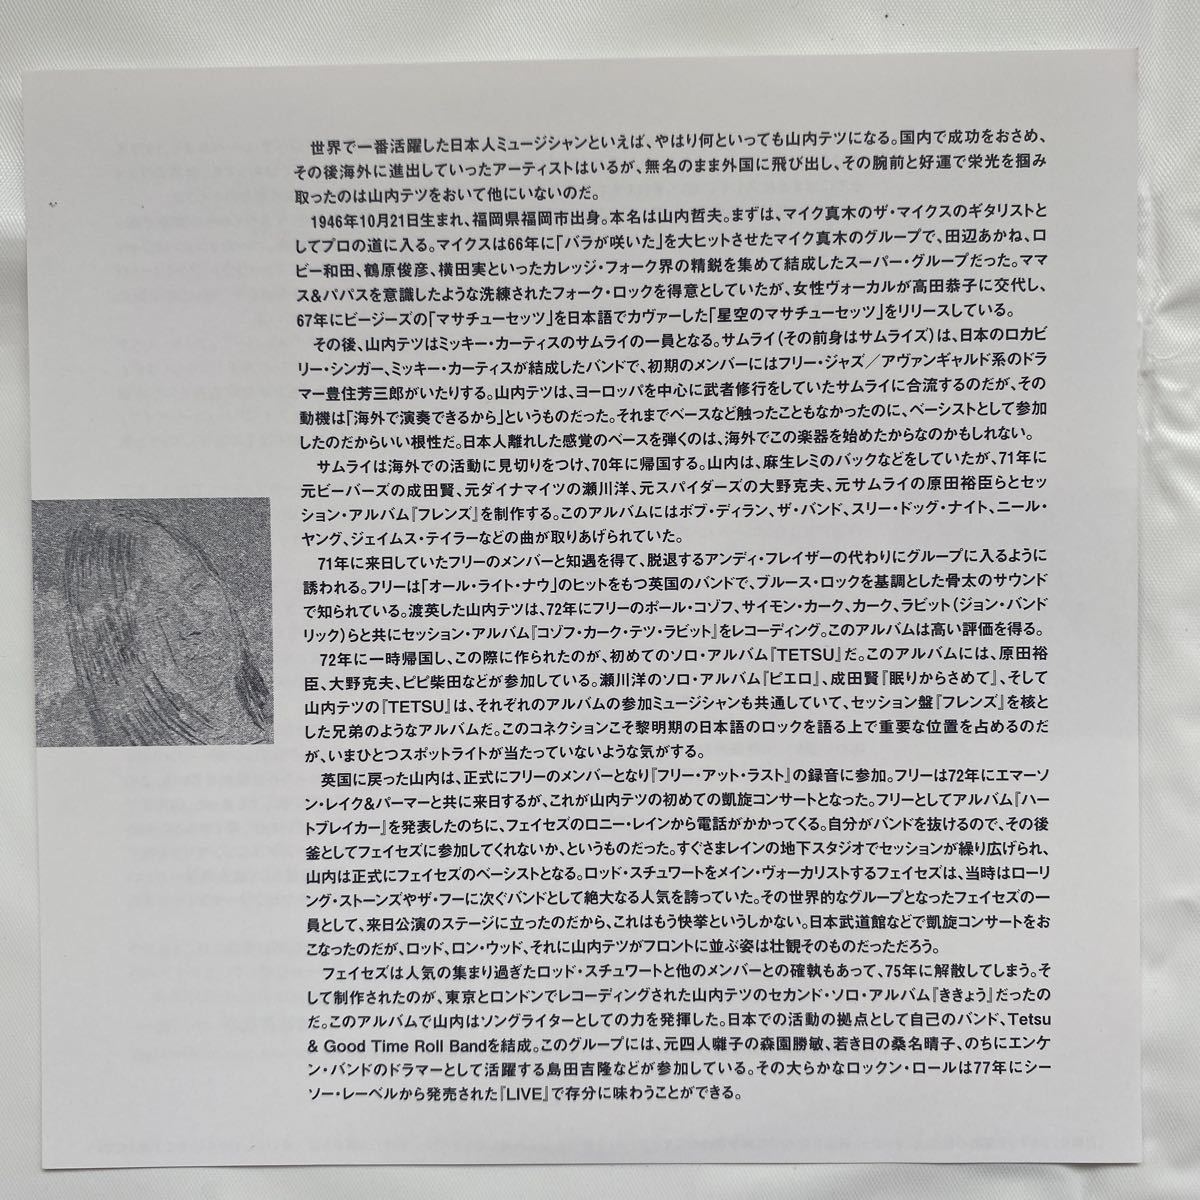 世界で一番活躍した日本人ミュージシャンといえば、やはり何といっても山内テツになる。国内で成功をおさめ、
その後海外に進出していったアーティストはいるが、無名のまま外国に飛び出し、その腕前と好運で栄光を掴み
取ったのは山内テツをおいて他にいないのだ。
1946年10月21日生まれ、福岡県福岡市出身。本名は山内哲夫。まずは、マイク真木のザ・マイクスのギタリストと
してプロの道に入る。マイクスは66年に「バラが咲いた」を大ヒットさせたマイク真木のグループで、田辺あかね、ロ
ビー和田、鶴原俊彦、横田実といったカレッジ・フォーク界の精鋭を集めて結成したスーパー・グループだった。ママ
ス&パパスを意識したような洗練されたフォーク・ロックを得意としていたが、女性ヴォーカルが高田恭子に交代し、
67年にビージーズの「マサチューセッツ」を日本語でカヴァーした「星空のマサチューセッツ」をリリースしている。
その後、山内テツはミッキー・カーティスのサムライの一員となる。サムライ(その前身はサムライズ)は、日本のロカビ
リー・シンガー、ミッキー・カーティスが結成したバンドで、初期のメンバーにはフリー・ジャズ／アヴァンギャルド系のドラ
マー豊住芳三郎がいたりする。山内テツは、ヨーロッパを中心に武者修行をしていたサムライに合流するのだが、その
動機は「海外で演奏できるから」というものだった。それまでベースなど触ったこともなかったのに、ベーシストとして参加
したのだからいい根性だ。日本人離れした感覚のベースを弾くのは、海外でこの楽器を始めたからなのかもしれない。
サムライは海外での活動に見切りをつけ、70年に帰国する。山内は、麻生レミのバックなどをしていたが、71年に
元ビーバーズの成田賢、元ダイナマイツの瀬川洋、元スパイダーズの大野克夫、元サムライの原田裕臣らとセッ
ション・アルバム『フレンズ』を制作する。このアルバムにはボブ・ディラン、ザ・バンド、スリー・ドッグ・ナイト、ニール・
ヤング、ジェイムス・テイラーなどの曲が取りあげられていた。
71年に来日していたフリーのメンバーと知遇を得て、脱退するアンディ・フレイザーの代わりにグループに入るように
誘われる。フリーは「オール・ライト・ナウ」のヒットをもつ英国のバンドで、ブルース・ロックを基調とした骨太のサウンド
で知られている。渡英した山内テツは、72年にフリーのポール・コゾフ、サイモン・カーク、カーク、ラビット(ジョン・バンド
リック)らと共にセッション・アルバム『コゾフ・カーク・テツ・ラビット』をレコーディング。このアルバムは高い評価を得る。
72年に一時帰国し、この際に作られたのが、初めてのソロ・アルバム『TETSU』だ。このアルバムには、原田裕
臣、大野克夫、ピピ柴田などが参加している。瀬川洋のソロ・アルバム『ピエロ』、成田賢『眠りからさめて』、そして
山内テツの『TETSU』は、それぞれのアルバムの参加ミュージシャンも共通していて、セッション盤『フレンズ』を核と
した兄弟のようなアルバムだ。このコネクションこそ黎明期の日本語のロックを語る上で重要な位置を占めるのだ
が、いまひとつスポットライトが当たっていないような気がする。
英国に戻った山内は、正式にフリーのメンバーとなり『フリー・アット・ラスト』の録音に参加。フリーは72年にエマーソ
ン・レイク&パーマーと共に来日するが、これが山内テツの初めての凱旋コンサートとなった。フリーとしてアルバム『ハー
トブレイカー』を発表したのちに、フェイセズのロニー・レインから電話がかかってくる。自分がバンドを抜けるので、その後
釜としてフェイセズに参加してくれないか、というものだった。すぐさまレインの地下スタジオでセッションが繰り広げられ、
山内は正式にフェイセズのベーシストとなる。ロッド・スチュワートをメイン・ヴォーカリストするフェイセズは、当時はローリ
ング・ストーンズやザ・フーに次ぐバンドとして絶大なる人気を誇っていた。その世界的なグループとなったフェイセズの一
員として、来日公演のステージに立ったのだから、これはもう快挙というしかない。日本武道館などで凱旋コンサートをお
こなったのだが、ロッド、ロン・ウッド、それに山内テツがフロントに並ぶ姿は壮観そのものだっただろう。
フェイセズは人気の集まり過ぎたロッド・スチュワートと他のメンバーとの確執もあって、75年に解散してしまう。そ
して制作されたのが、東京とロンドンでレコーディングされた山内テツのセカンド・ソロ・アルバム『ききょう』だったの
だ。このアルバムで山内はソングライターとしての力を発揮した。日本での活動の拠点として自己のバンド、Tetsu
& Good Time Roll Bandを結成。このグループには、元四人囃子の森園勝敏、若き日の桑名晴子、のちにエンケ
ン・バンドのドラマーとして活躍する島田吉隆などが参加している。その大らかなロックン・ロールは77年にシー
ソー・レーベルから発売された『LIVE』で存分に味わうことができる。